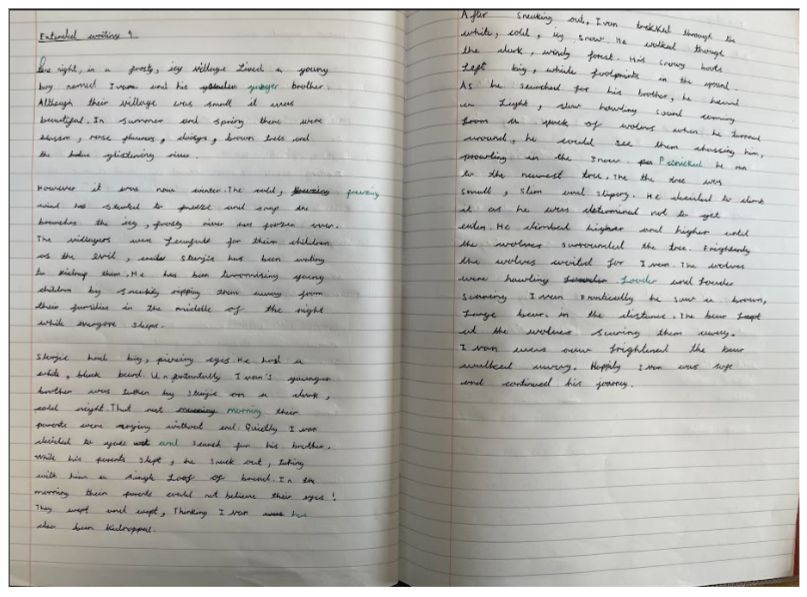 Extended writing 1.
One night, in a frosty, icy village lived a young
boy named Ivan and his younger brother.
Although their village was small it was
beautiful. In summer and spring there were
blossom, rose flowers, daisys, brown trees and
the baltic glistening river.
However it was now winter. The cold, freezing
wind has started to freeze and snap the
branches the icy, frosty river was frozen over.
The villagers were fearfull for their children
as the evil, sterjie has been waiting
to kidnap them. He has been terrorising young
children by sneakily ripping them away from
their families in the middle of the night
while everyone sleeps.
Sterjie had big, piercing eyes. He had a
white, black beard. Unfortunatly Ivan's younger
brother was taken by Sterjie on a dark,
cold night. That next morning their
parents were crying without end. Quietly Ivan
decided to and search for his brother.
While his parents slept, he snuck out, taking
with him a single loaf of bread. In the
morning their parents could not believe their eyes!
They wept and wept, Thinking Ivan had
also been kidnapped.
After sneaking out, Ivan trekked through the
white, cold, icy snow. He walked through
the dark, windy forest. His snowy boots
left big, white footprints in the ground.
As he searched for his brother, he heard
a light, slow howling sound coming
from a pack of wolves when he turned
around, he could see them chasing him,
prowling in the snow. Panicked he ran
to the nearest tree. The the tree was
small, slim and slipery. He decided to climb
it as he was determined not to get
eaten. He climbed higher and higher until
the wolves surrounded the tree. Frighendly
the wolves waited for Ivan. The wolves
were howling louder and louder
scaring Ivan Frantically he saw a brown,
large bear. in the distance. The bear leapt
at the wolves scaring them away.
Ivan was now frightened the bear
walked away. Happily Ivan was safe
and continued his journey.